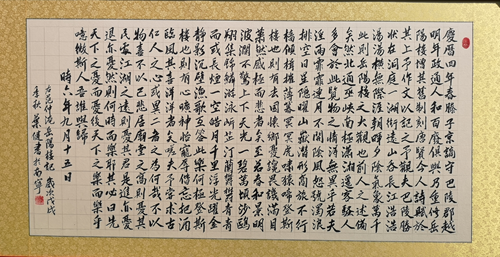 慶曆四年春滕子京謫守巴陵郡越
明年政通人和百廢俱興乃重修岳
陽樓增其舊制刻唐賢今人詩賦於
其上予作文以記之予觀夫巴陵勝
狀在洞庭一湖銜遠山吞長江浩浩
湯湯橫無際涯朝暉夕陰氣象萬千
此則岳陽樓之大觀也前人之述備
矣然則北通巫峽南極瀟湘遷客騷人
多會於此覽物之情得無異乎若夫
淫雨霏霏連月不開陰風怒號濁浪
排空日星隱曜山岳潛形商旅不行
檣傾楫摧薄暮冥冥虎嘯猿啼登斯
樓也則有去國懷鄉憂讒畏譏滿目
蕭然感極而悲者矣至若春和景明
波瀾不驚上下天光一碧萬頃沙鷗
翔集錦鱗游泳岸芷汀蘭郁郁青青
而或長煙一空皓月千里浮光躍金
靜影沉璧漁歌互答此樂何極登斯
樓也則有心曠神怡寵辱偕忘把酒
臨風其喜洋洋者矣嗟夫予嘗求古
仁人之心或異二者之為何哉不以
物喜不以己悲居廟堂之高則憂其
民處江湖之遠則憂其君是進亦憂
退亦憂然則何時而樂耶其必曰先
天下之憂而憂後天下之樂而樂乎
噫微斯人吾誰與歸
時六年九月十五日
右范仲淹岳陽樓記 歲次戊戌
季秋 葉健書於南寧